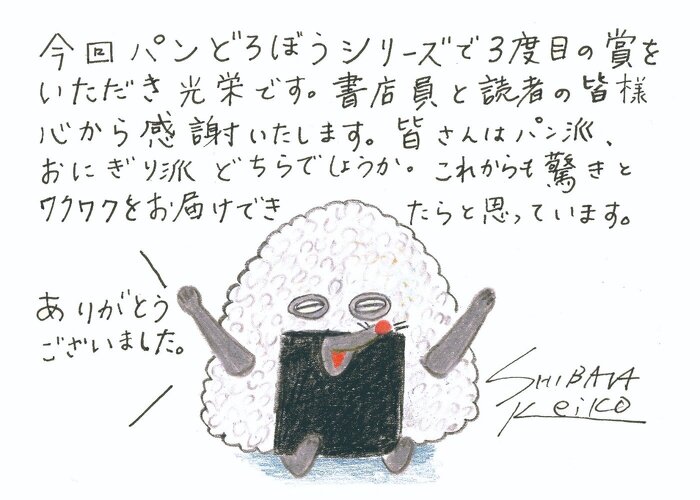 今回パンどろぼうシリーズで3度目の賞を
いただき光栄です。書店員と読者の皆様
心から感謝いたします。皆さんはパン派、
おにぎり派どちらでしょうか。これからも驚きと
ワクワクをお届けできたらと思っています。
ありがとう
ございました。
SHIBATA
Keiko